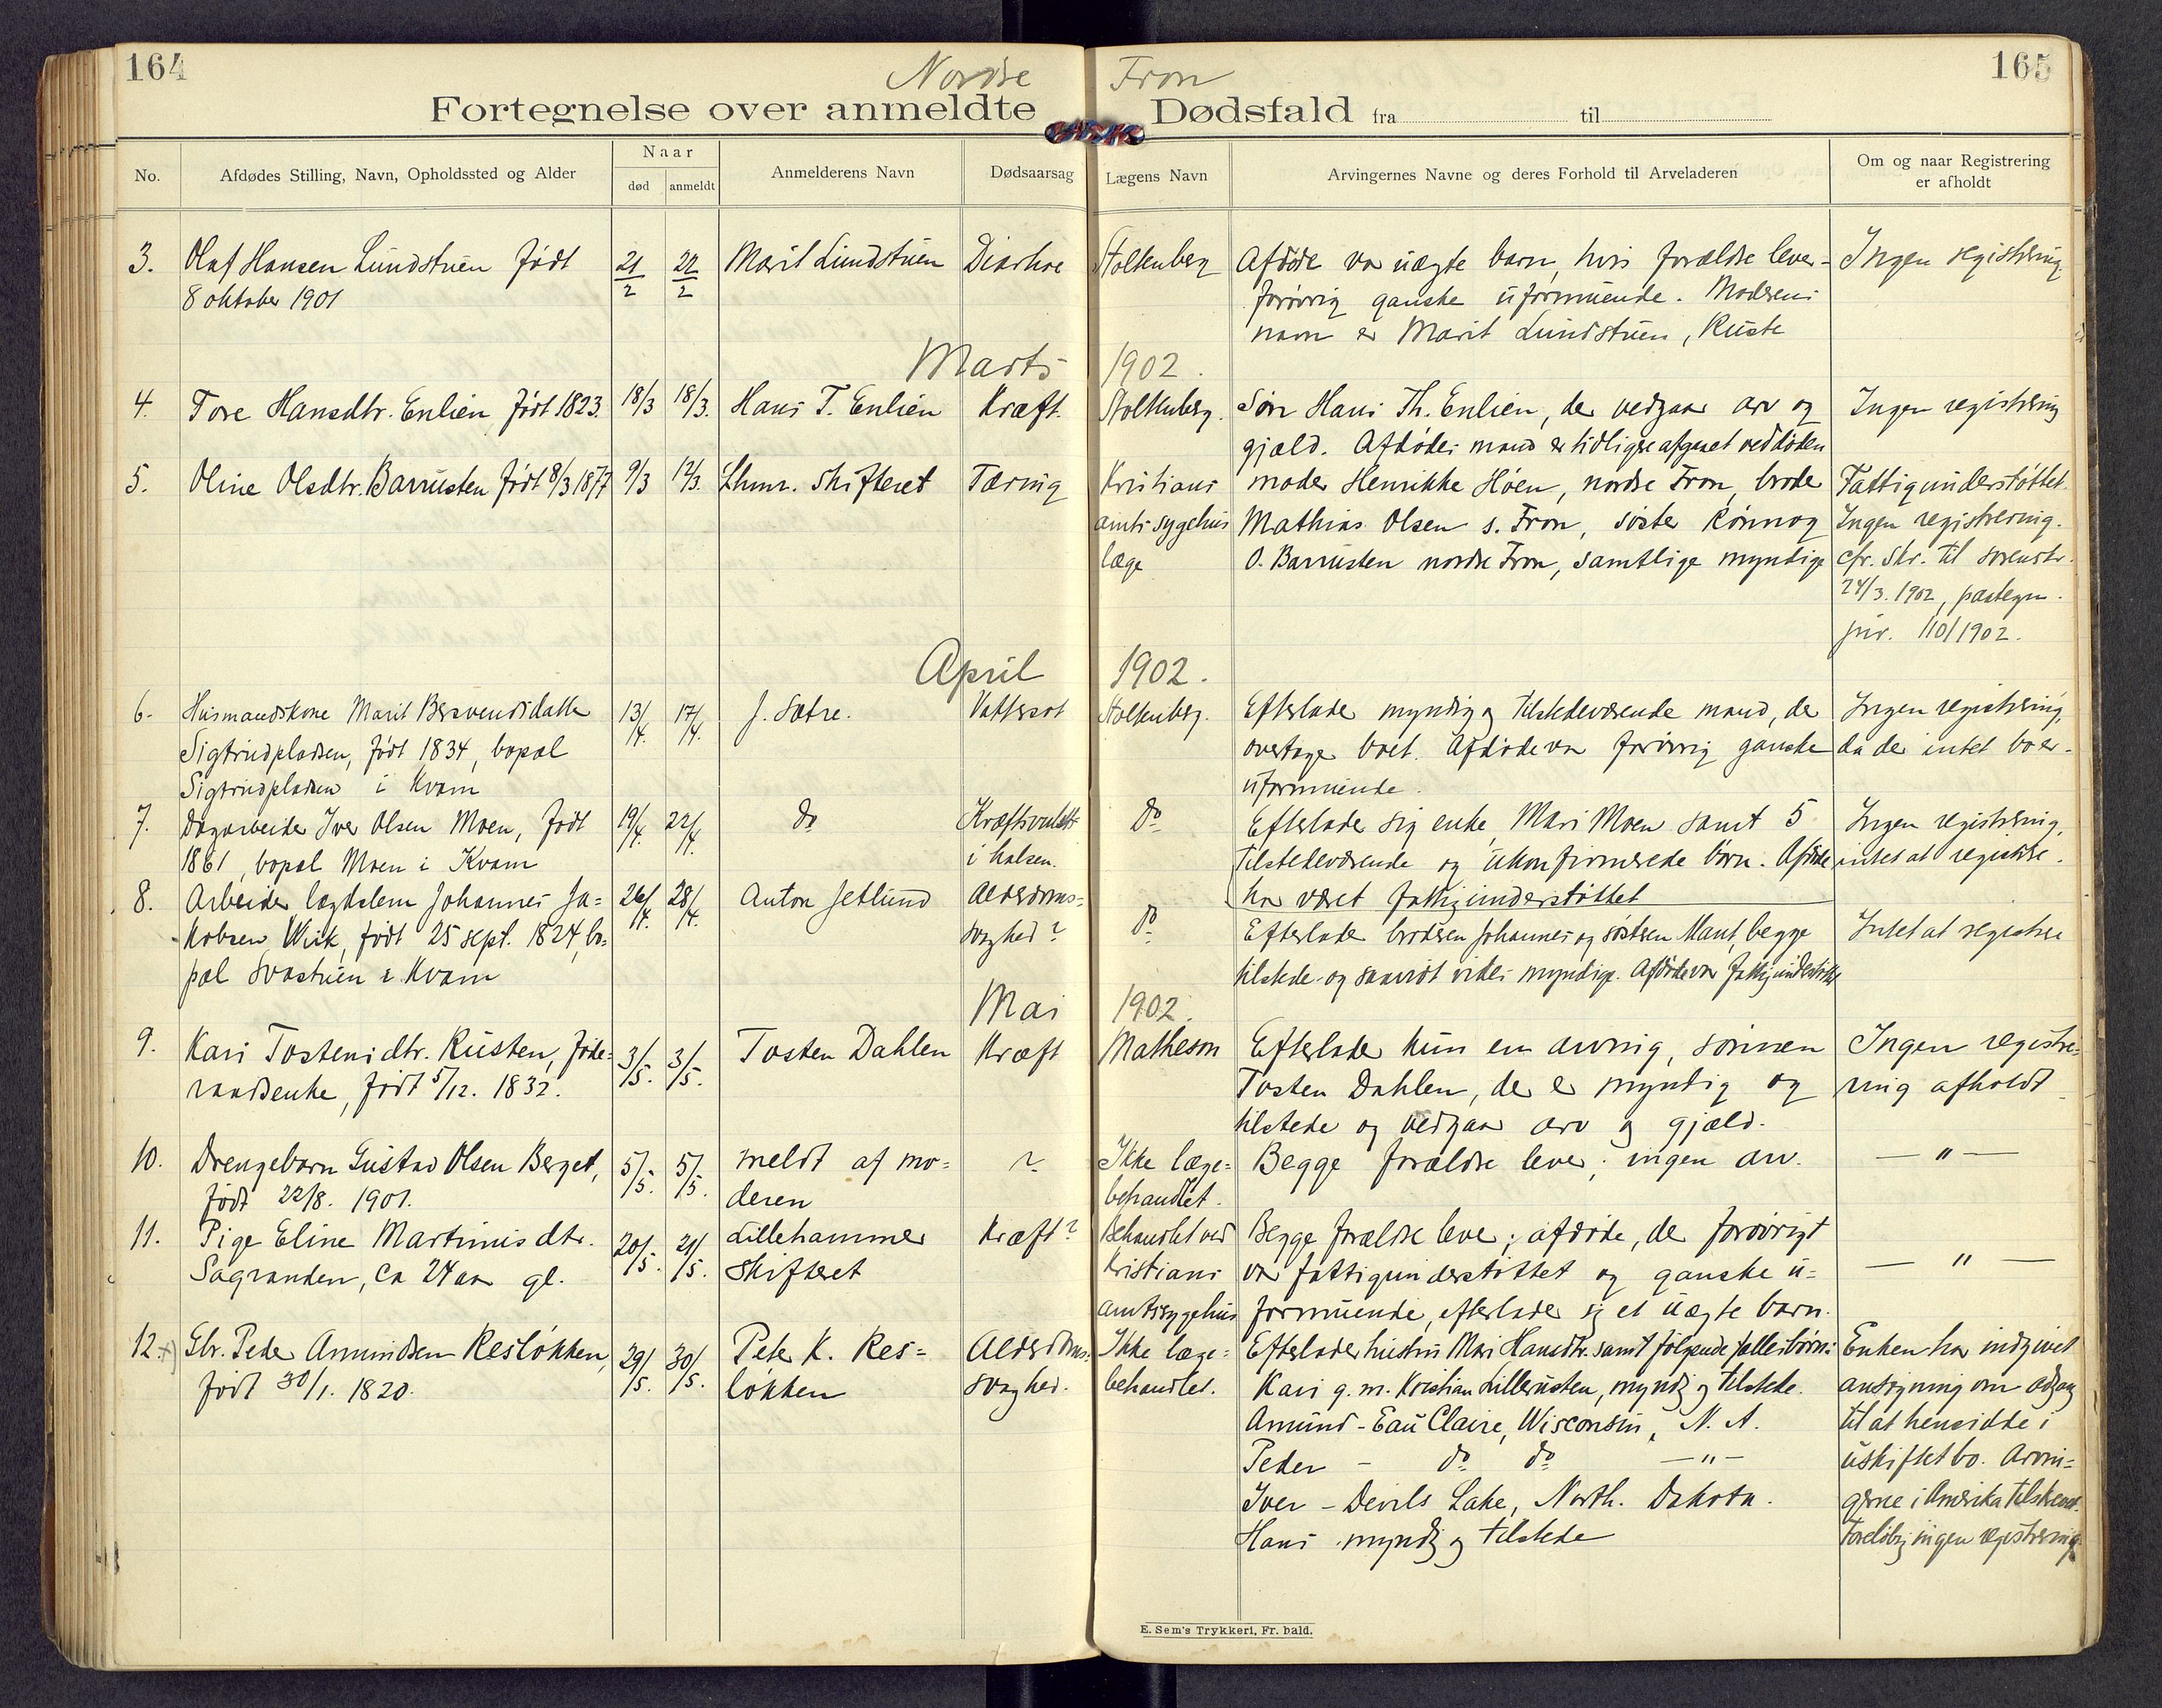 164
165
Nordre Fron
Fortegnelse over anmeldte Dødsfald fra til
No.
Afdødes Stilling, Navn, Opholdssted og Alder
Naar
død
anmeldt
Anmelderens Navn
Dødsaarsag
Lægens Navn
Arvingernes Navne og deres Forhold til Arveladeren
Om og naar Registrering
er afholdt
3.
Olaf Hansen Lundstuen født
8 oktober 1901
21/2
22/2
Marit Lundstuen
Diarhoe
Stoltenberg
Afdøde var uægte barn, hvis forældre lever -
forøvrig ganske uformuende. Moderens
navn er Marit Lundstuen, Ruste
Ingen registrering.
Marts 1902.
4.
Tore Hansdtr. Enlien født 1823.
18/3
18/3.
Hans T. Enlien
Kræft.
Stoltenberg.
Søn Hans Th. Enlien, der vedgaar arv og
gjæld. Afdødes mand er tidligere afgaaet ved døden
Ingen registrering
5.
Oline Olsdtr. Barrusten født 8/3 1877
9/3
12/3.
Lhmr. Skifteret
Tæring
Kristians
amts sygehus
læge
moder Henrikke Høen, nordre Fron, broder
Mathias Olsen s. Fron, søster Rønnog
O. Barrusten nordre Fron, samtlige myndige
Fattigunderstøttet.
Ingen registrering.
cfr. skr. til sorenskr.
24/3. 1902, paategn.
jnr. 110/1902.
April 1902.
6.
Husmandskone Marit
Sigtrudpladsen, født 1834, bopæl
Sigtrudpladsen i Kvam
13/4.
17/4.
J. Sætre.
Vattersot
Stoltenberg.
Efterlader myndig og tilstedeværende mand, der
overtager boet. Afdøde var forøvrig ganske
uformuende.
Ingen registrering,
da der intet bo er.
7.
Dagarbeider Iver Olsen Moen, født
1861, bopæl Moen i Kvam
19/4.
22/4.
do
Kræftsvulst
i halsen.
do
Efterlader sig enke Mari Moen samt 5
tilstedeværende og ukonfirmerede børn. Afdøde
har været fattigunderstøttet
Ingen registrering,
intet at registrere.
8.
Arbeider lægdslem Johannes Ja=
kobsen Wiik, født 25 sept. 1824, bo=
pæl Svastuen i Kvam
26/4.
28/4.
Anton Jetlund
Alderdoms=
svaghed?
do
Efterlader broderen Johannes og søsteren Marit, begge
tilstede og saavidt vides myndige. Afdøde var fattigunderstøttet
Intet at registrere
Mai 1902.
9.
Kari Tostensdtr. Rusten, føde=
raadsenke, født 5/12. 1832.
3/5.
3/5.
Tosten Dahlen
Kræft
Matheson
Efterlader kun en arving, sønnen
Tosten Dahlen, der er myndig og
tilstede og vedgaar arv og gjæld.
Ingen registre=
ring afholdt
10.
Drengebarn Gustav Olsen Berget,
født 22/8. 1901.
5/5.
5/5.
meldt af mo=
deren
?
Ikke læge=
behandlet.
Begge forældre lever; ingen arv.
— " —
11.
Pige Eline Martinusdtr.
Sagranden, ca 24 aar gl.
20/5.
21/5.
Lillehammer
Skifteret
Kræft?
Behandlet ved
Kristians
amtssygehus
Begge forældre lever; afdøde, der forøvrigt
var fattigunderstøttet og ganske u=
formuende, efterlader sig et uægte barn.
— " —
12. x)
Gbr. Peder Amundsen Resløkken,
født 30/1. 1820.
29/5.
30/5.
Peter K. Res=
løkken
Alderdoms=
svaghed.
Ikke læge=
behandlet.
Efterlader hustru Mari Hansdtr. samt følgende fællesbørn:
Kari g. m. Kristian Lillerusten, myndig og tilstede.
Amund - Eau Claire, Wisconsin, N. A.
Peder - do do — " —
Iver - Devils Lake, North. Dakota.
Hans myndig og tilstede
Enken har indgivet
ansøgning om adgang
til at hensidde i
uskiftet bo. Arvin=
gerne i Amerika tilskrevet.
Foreløbig ingen registrering.
E. Sem's Trykkeri, Fr. hald.